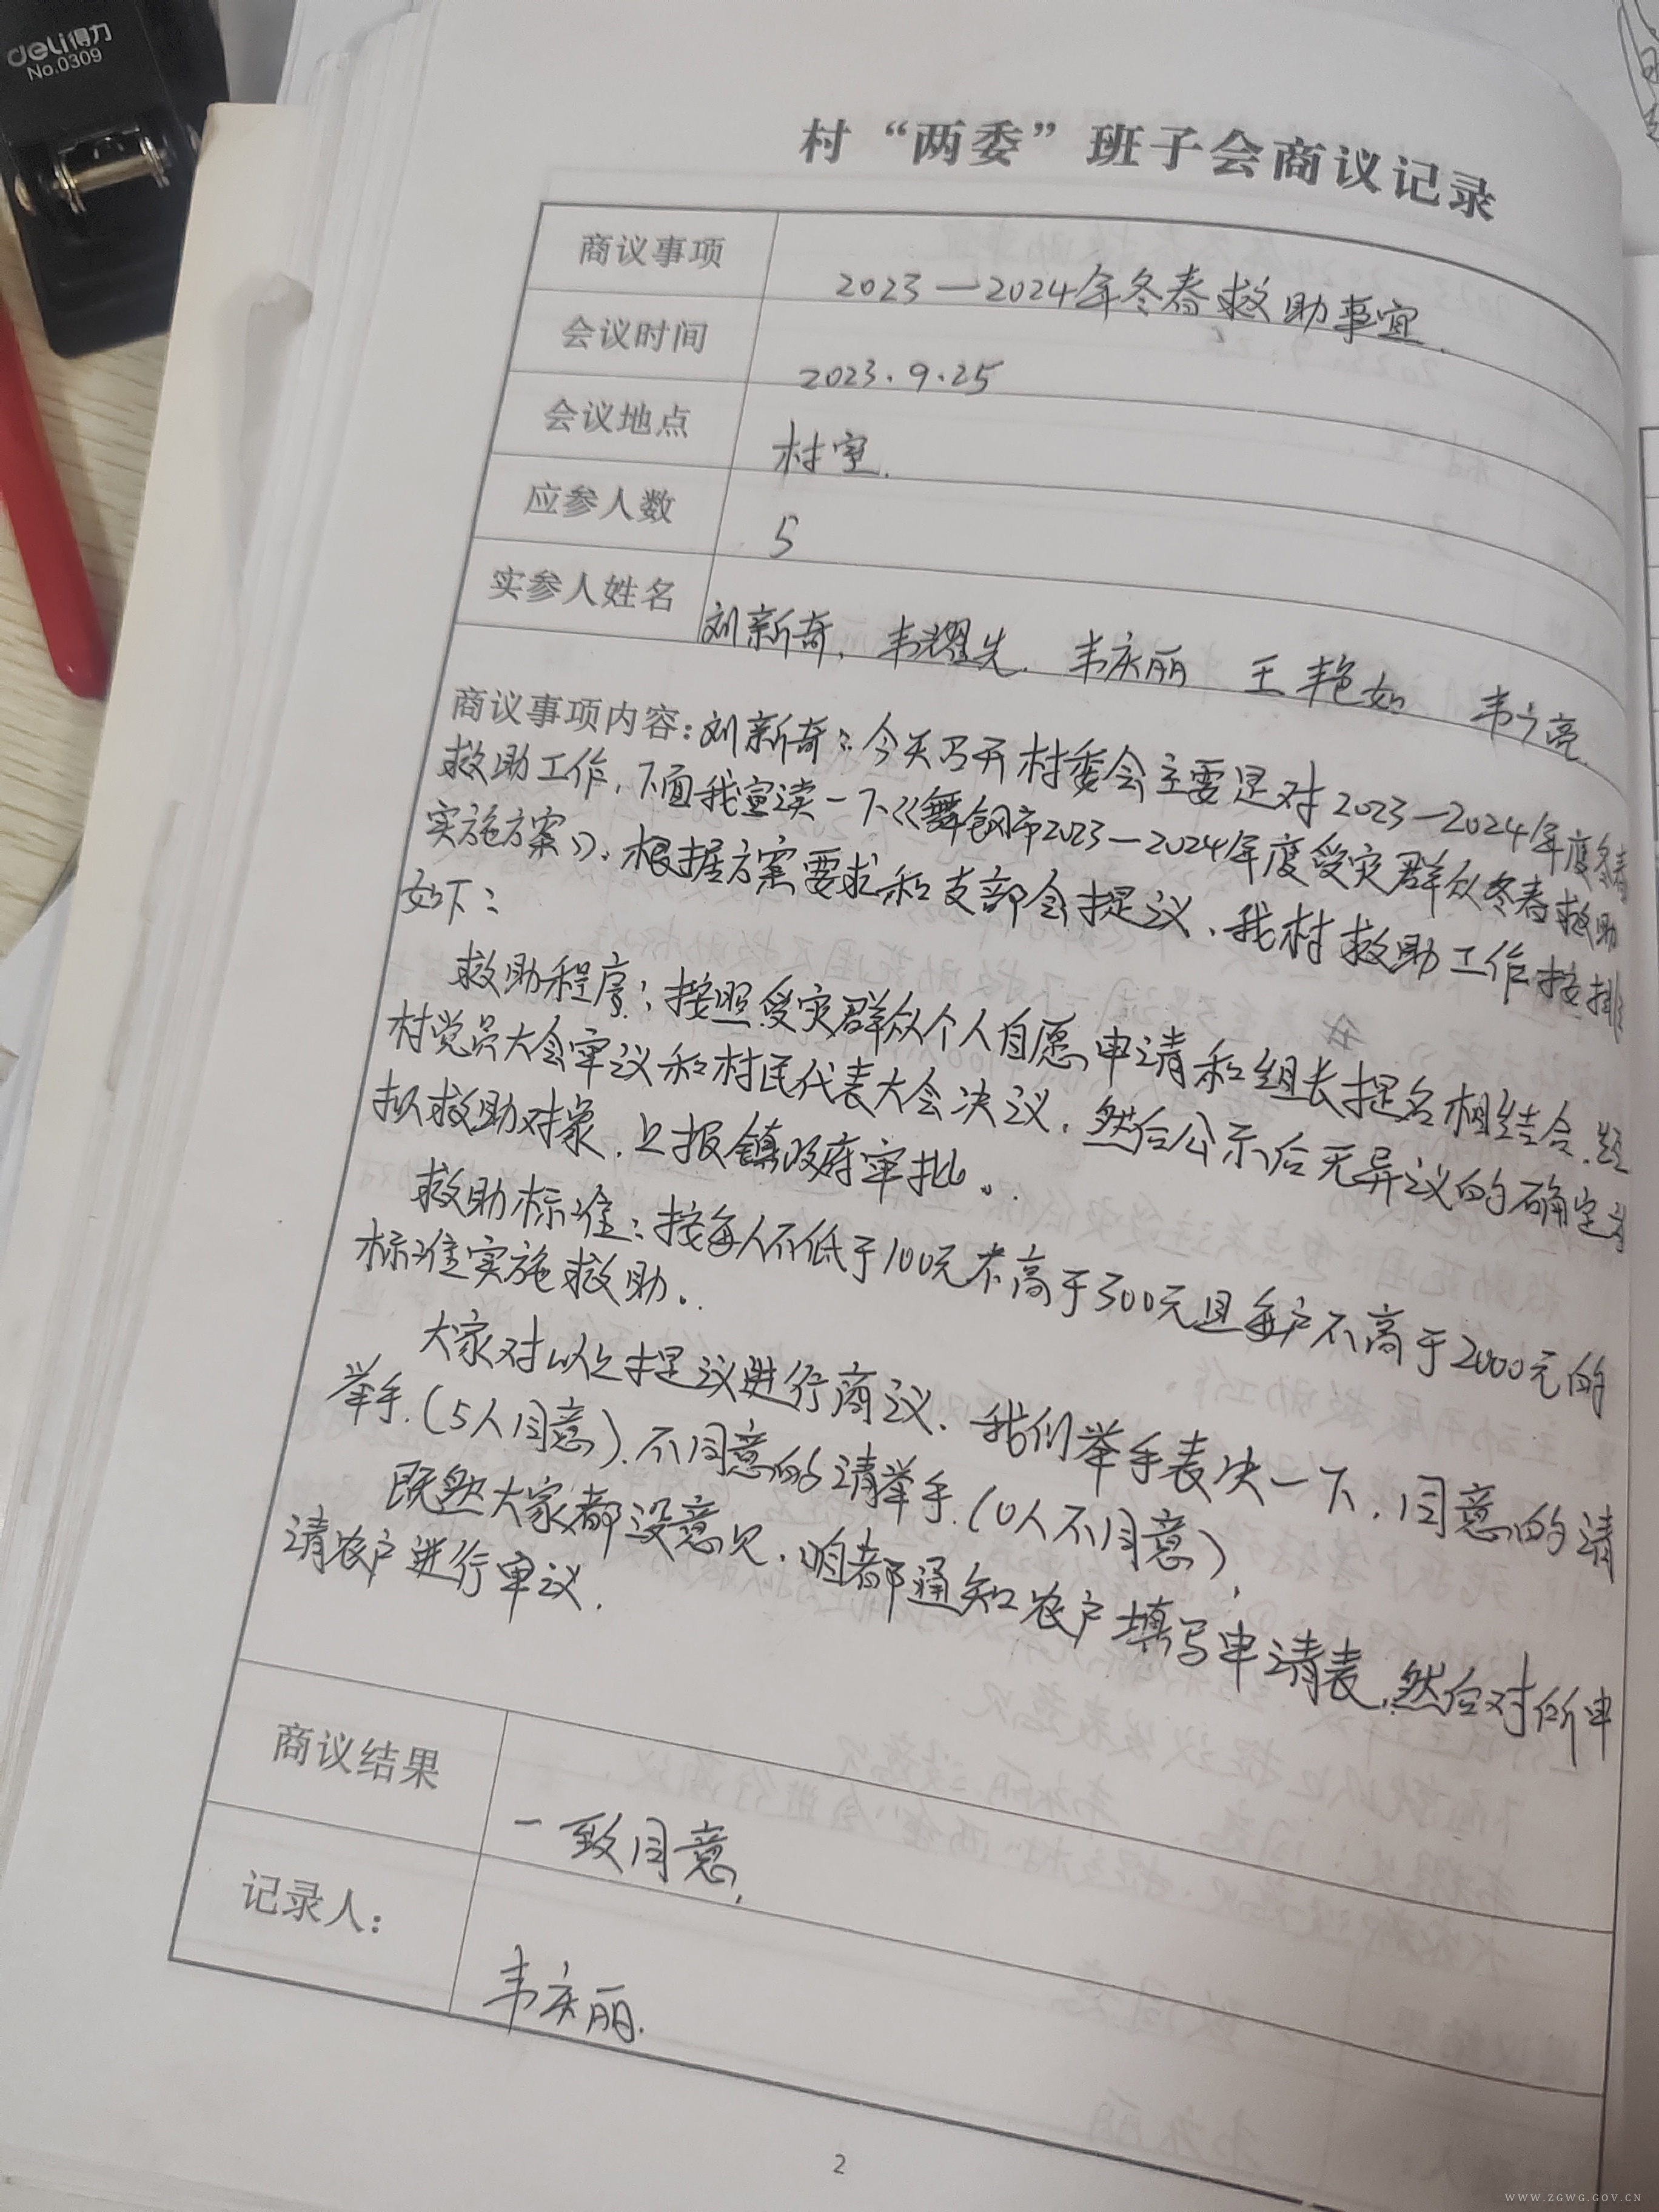 deli得力
No.0309
村“两委”班子会商议记录
商议事项 2023—2024年冬春救助事宜.
会议时间 2023.9.25
会议地点 村室.
应参人数 5
实参人姓名 刘新奇、韦耀先、韦庆丽 王艳如 韦广亮
商议事项内容:刘新奇:今天召开村委会主要是对2023—2024年度冬春
救助工作,下面我宣读一下《舞钢市2023—2024年度受灾群众冬春救助
实施方案》、根据方案要求和支部会提议、我村救助工作按排
如下:
救助程序:按照受灾群众个人自愿申请和组长提名相结合.经
村党员大会审议和村民代表大会决议.然后公示后无异议的确定为
拟救助对象.上报镇政府审批。
救助标准:按每人不低于100元不高于300元且每户不高于2000元的
标准实施救助。
大家对以上提议进行商议、我们举手表决一下,同意的请
举手.(5人同意).不同意的请举手.(0人不同意),
既然大家都没意见.咱都通知农户填写申请表,然后对所申
请农户进行审议.
商议结果 一致同意,
记录人: 韦庆丽.
2
WWW.ZGWG.GOV.CN